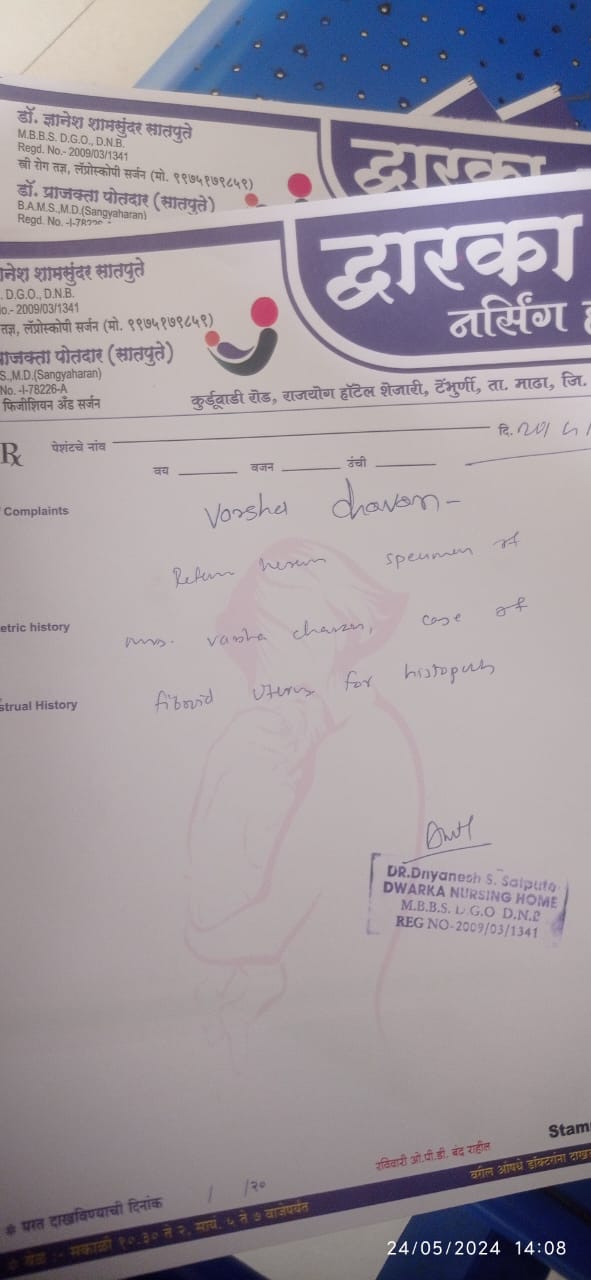 डॉ. ज्ञानेश शामसुंदर सातपुते
M.B.B.S. D.G.O., D.N.B.
Regd. No.- 2009/03/1341
स्त्री रोग तज्ञ, लॅप्रोस्कोपी सर्जन (मो. ९९७५१७९८५१)
डॉ. प्राजक्ता पोतदार (सातपुते)
B.A.M.S.,M.D.(Sangyaharan)
Regd. No. -I-782
द्वारका
नेश शामसुंदर सातपुते
. D.G.O., D.N.B.
o.- 2009/03/1341
तज्ञ, लॅप्रोस्कोपी सर्जन (मो. ९९७५१७९८५१)
प्राजक्ता पोतदार (सातपुते)
S.,M.D.(Sangyaharan)
No. -I-78226-A
फिजीशियन अँड सर्जन
द्वारका
नर्सिंग
कुर्डूवाडी रोड, राजयोग हॉटेल शेजारी, टेंभुर्णी, ता. माढा, जि.
Rx पेशंटचे नांव दि.
वय वजन उंची
Complaints
Varsha chavan -
specimen of
etric history
mrs. varsha chavan, case of
strual History
fibroid uterus for histopath
DR.Dnyanesh S. Satpute
DWARKA NURSING HOME
M.B.B.S. D.G.O D.N.B
REG NO-2009/03/1341
Stam
रविवारी ओ.पी.डी. बंद राहील
वरील औषधे डॉक्टरांना दाख
* परत दाखविण्याची दिनांक / /२०
* वेळ :- सकाळी १०.३० ते २, सायं. ५ ते ७ वाजेपर्यंत
24/05/2024 14:08